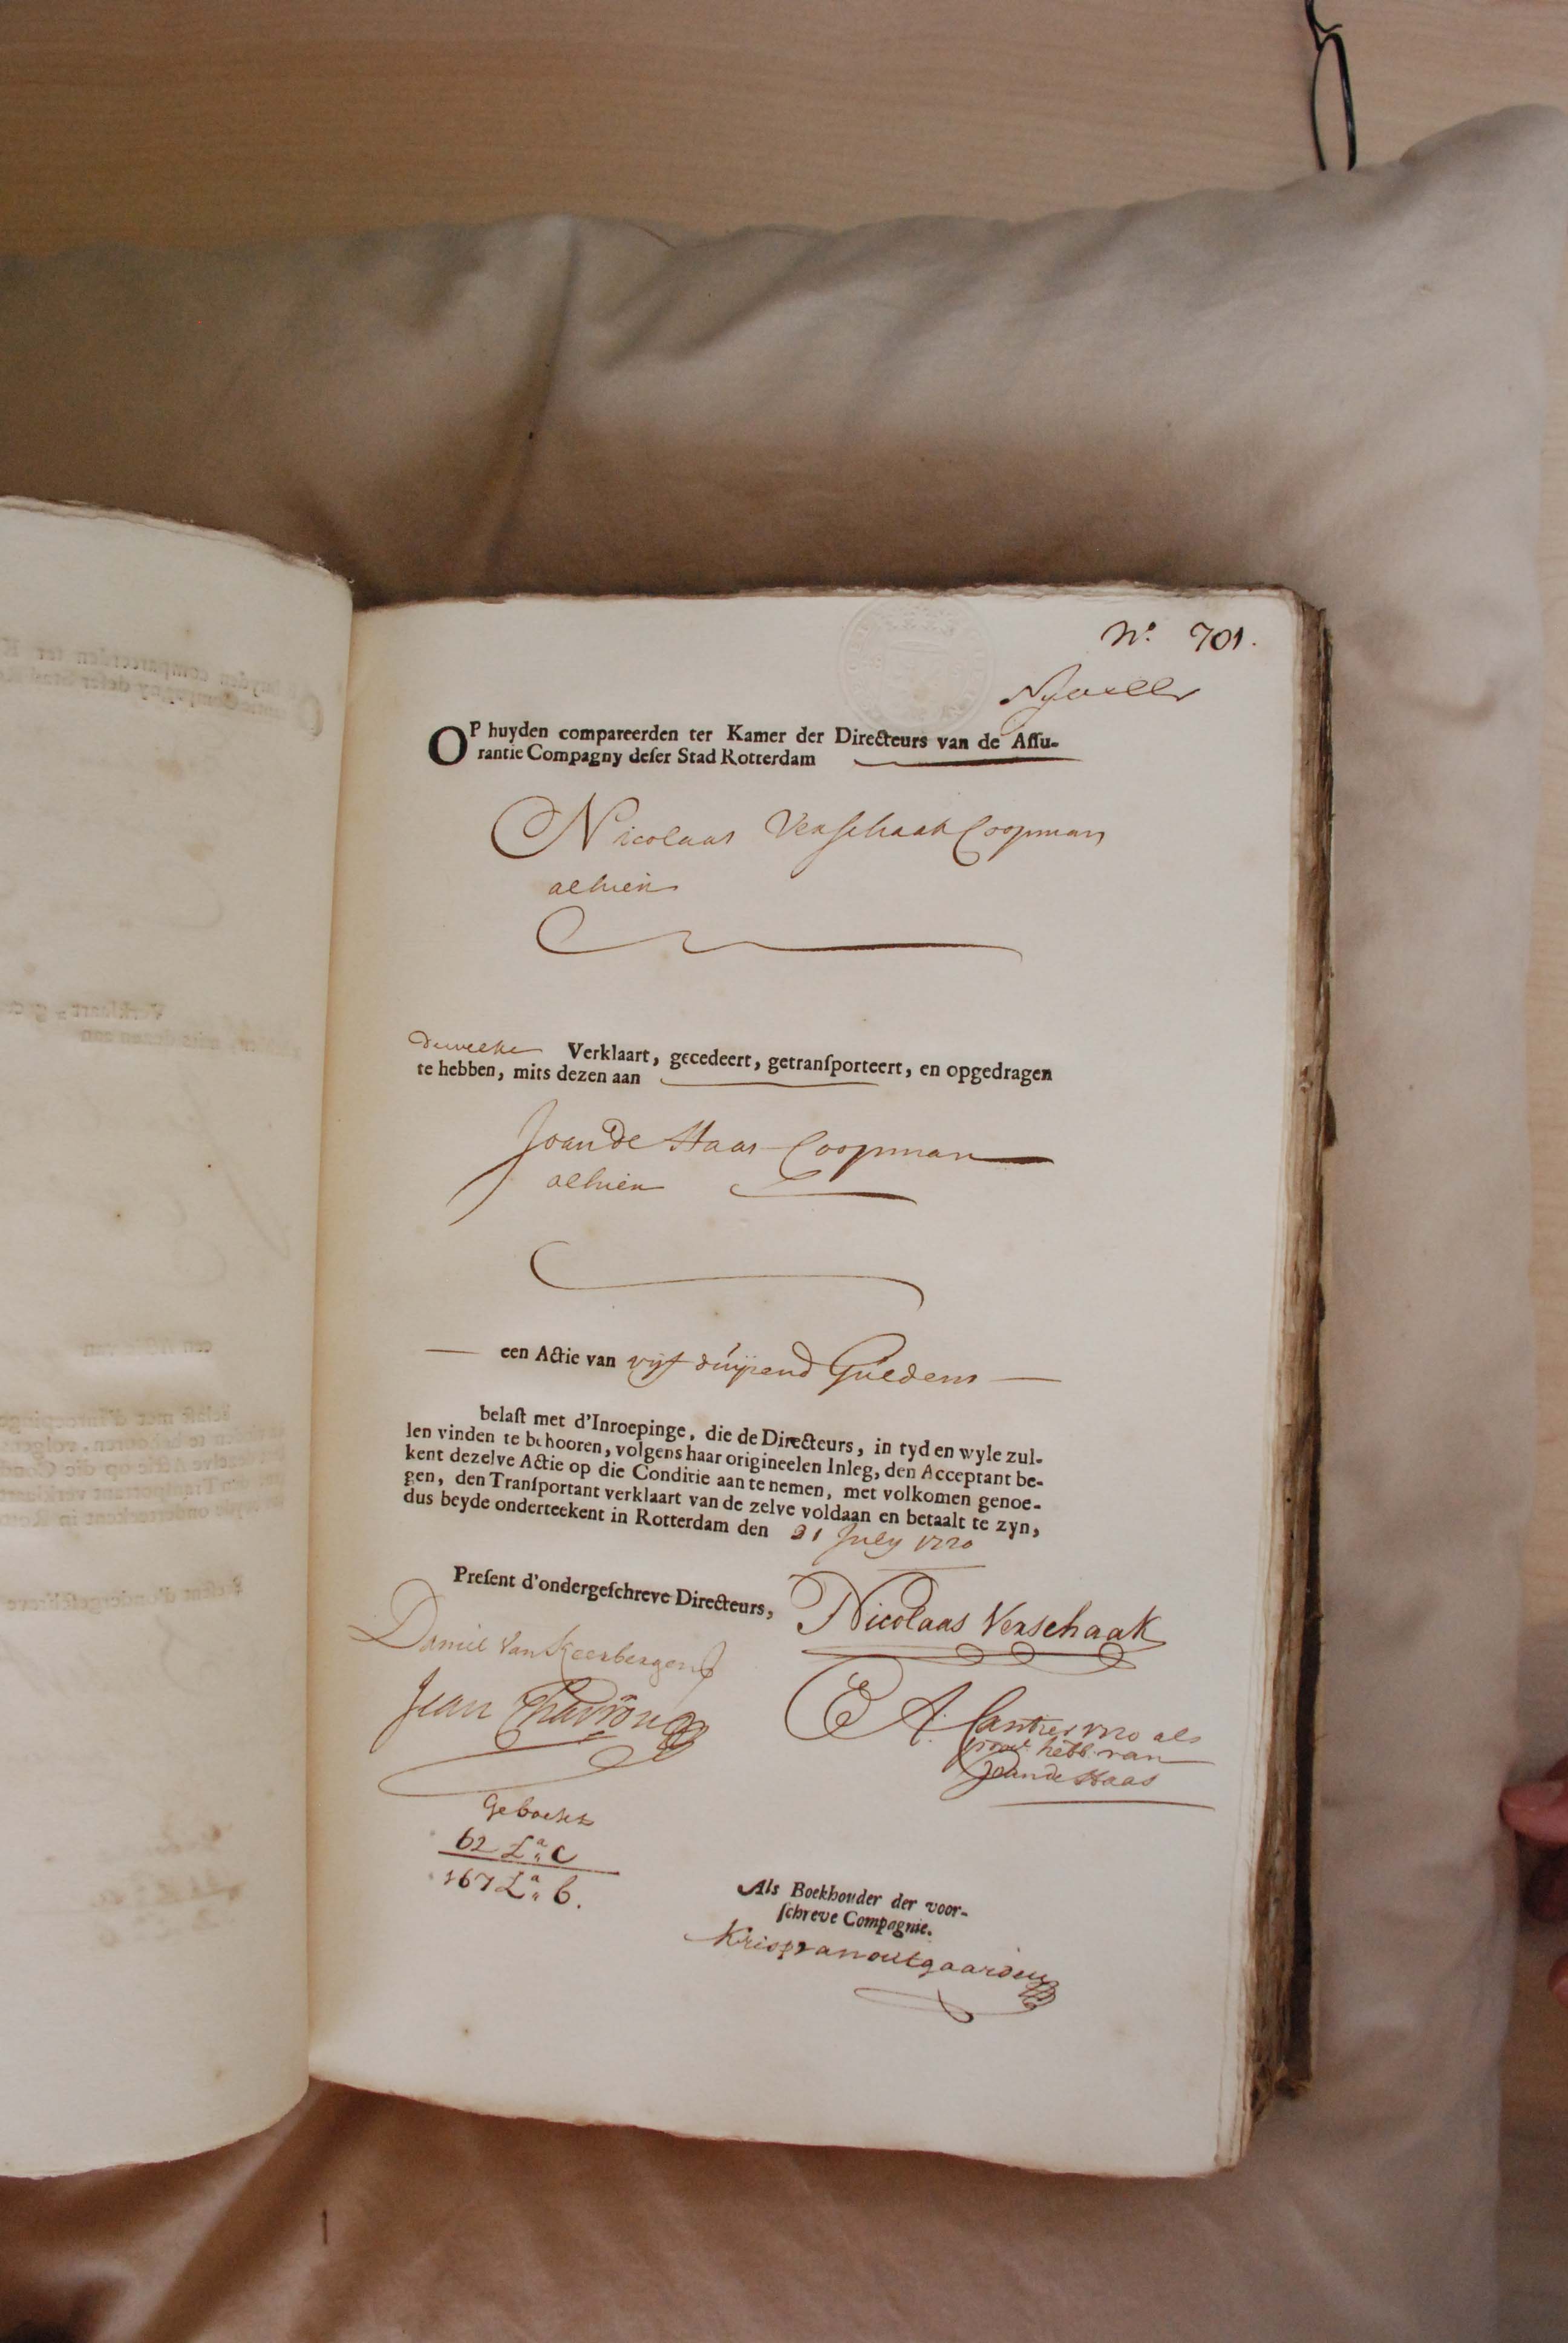 No. 701.
OP huyden compareerden ter Kamer der Directeurs van de Assu-
rantie Compagny deser Stad Rotterdam
Nicolaas Verschaak Coopman
alhier
dewelke Verklaart, gecedeert, getransporteert, en opgedragen
te hebben, mits dezen aan
Joan de Haas Coopman
alhier
een Actie van vyf duysend Guldens
belast met d'Inroepinge, die de Directeurs, in tyd en wyle zul-
len vinden te behooren, volgens haar origineelen Inleg, den Acceptant be-
kent dezelve Actie op die Conditie aan te nemen, met volkomen genoe-
gen, den Transportant verklaart van de zelve voldaan en betaalt te zyn,
dus beyde onderteekent in Rotterdam den 21 July 1720
Present d'ondergeschreve Directeurs,
Nicolaas Verschaak
Daniel Van Keerbergen
Jean
A. 1720 als
van
Joan de Haas
Geboekt
62 La. C
167 La. b.
Als Boekhouder der voor-
schreve Compagnie.
Kris van outgaarden